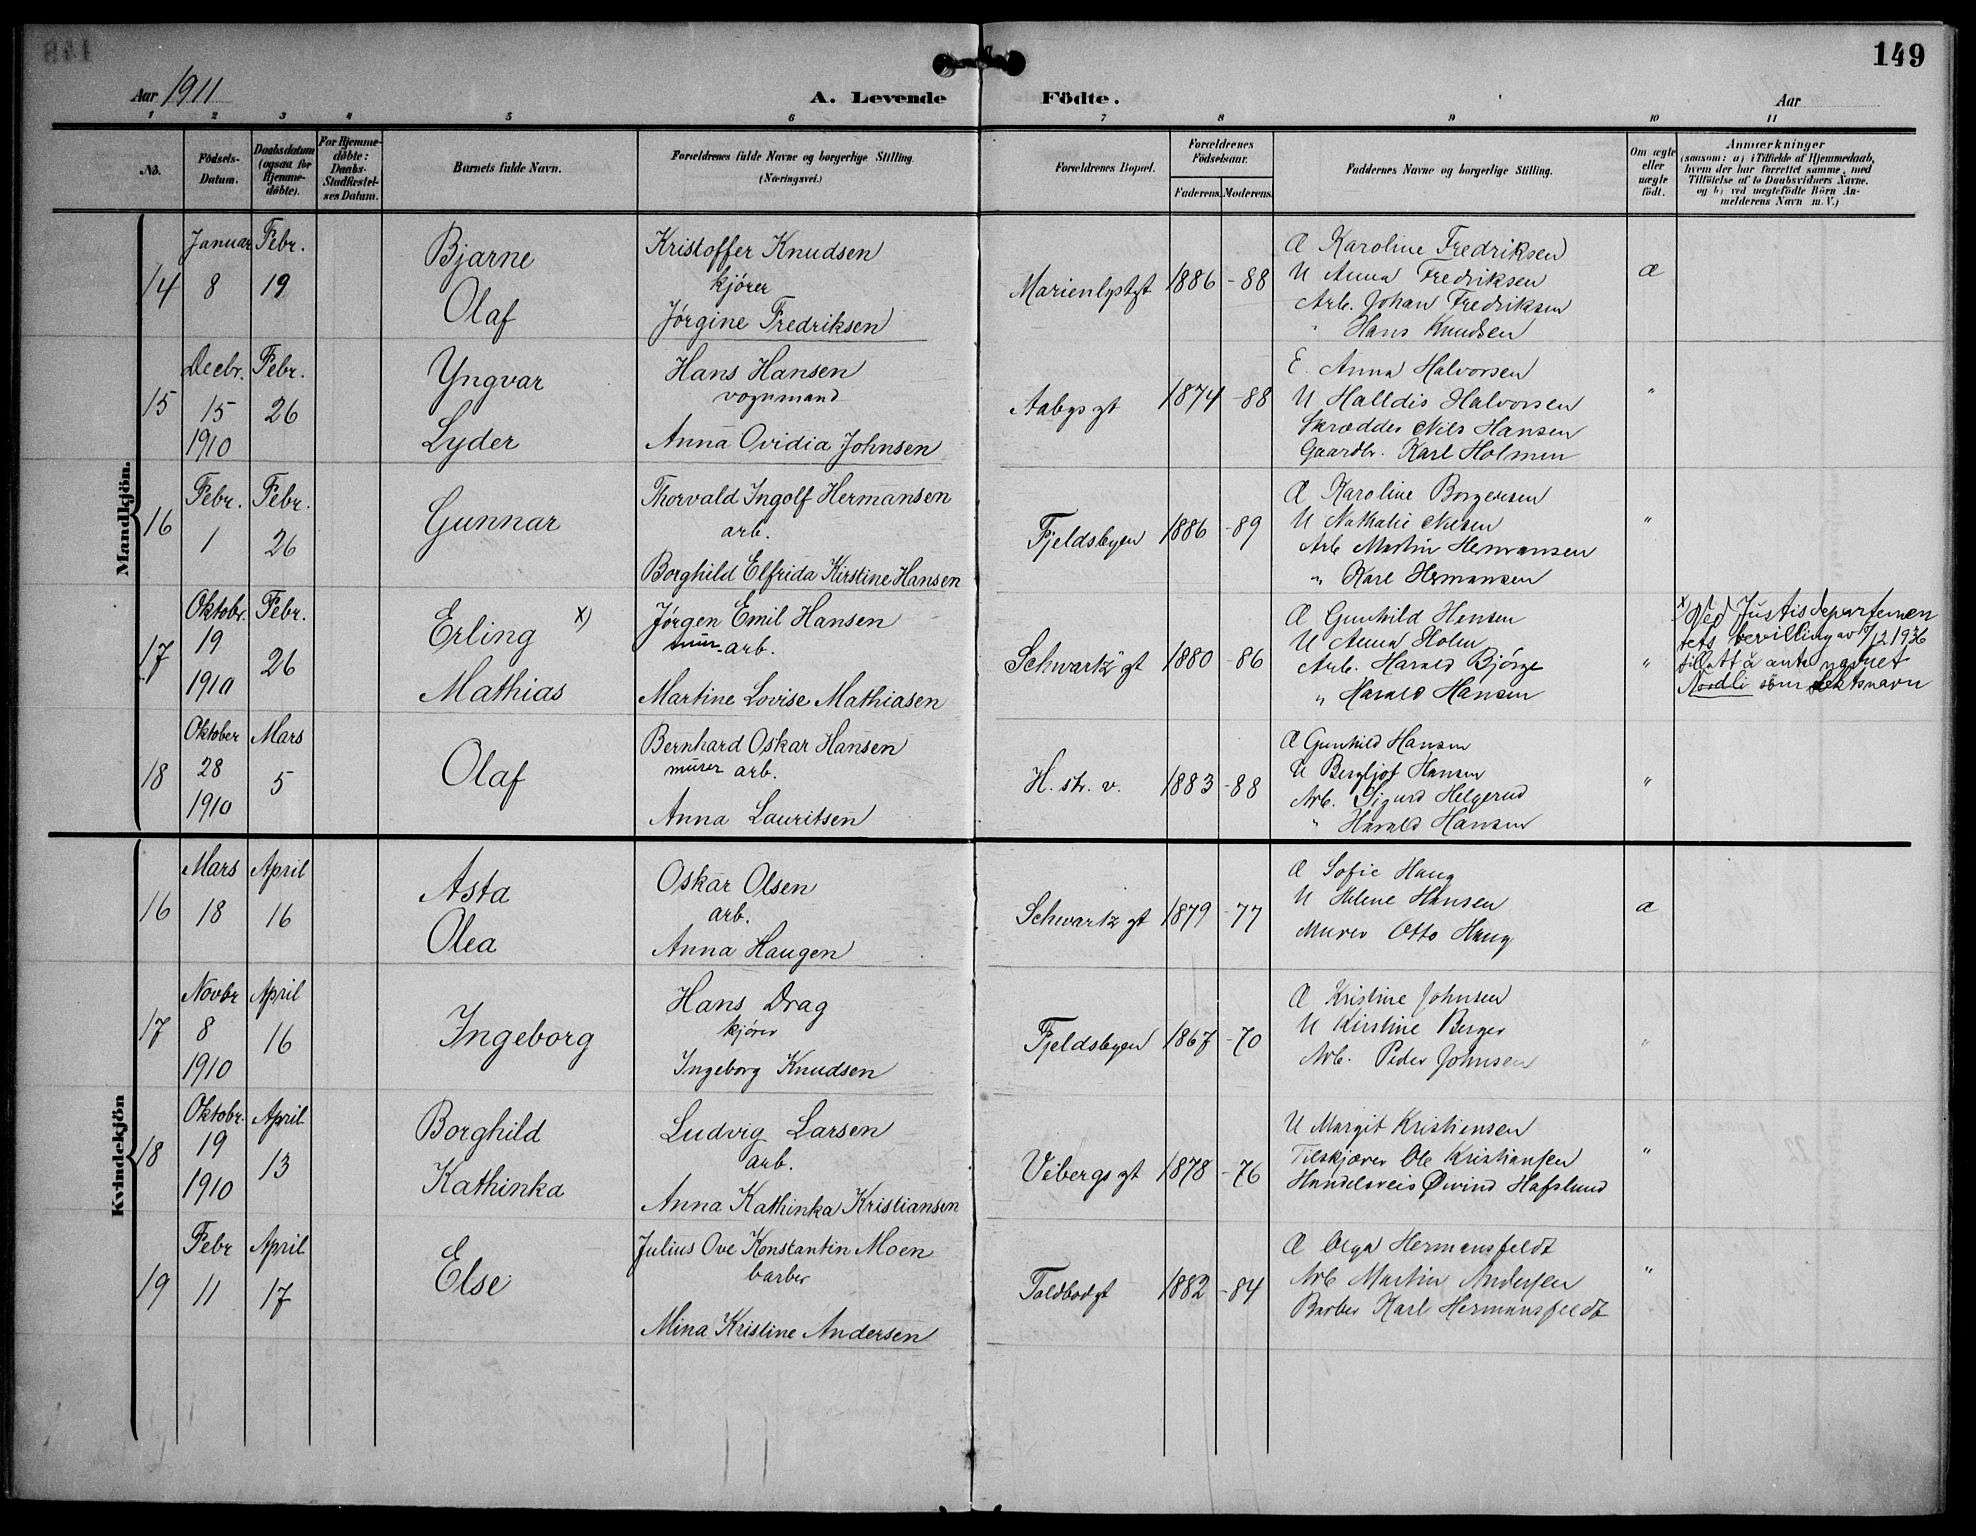 149
Aar 1911
A. Levende Födte.
Aar
1 2 3 4 5 6 7 8 9 10 11
No.
Födsels-Datum.
Daabsdatum (ogsaa for Hjemmedöbte).
For Hjemmedöbte: Daabs-Stadfæstelses Datum.
Barnets fulde Navn.
Forældrenes fulde Navne og borgerlige Stilling. (Næringsvei.)
Forældrenes Bopæl.
Forældrenes Födselsaar.
Faderens. Moderens.
Faddernes Navne og borgerlige Stilling.
Om ægte eller uægte födt.
Anmærkninger
(saasom: a) i Tilfælde af Hjemmedaab,
hvem der har forrettet samme, med
Tilföielse af to Daabsvidners Navne.
og b) ved uægtefödte Börn An-
melderens Navn m. V.)
Mandkjön.
14
Januar 8
Febr. 19
Bjarne
Olaf
Kristoffer Knudsen
kjører
Jørgine Fredriksen
Marienlystgt
1886 -88
Æ Karoline Fredriksen
U Anna Fredriksen
Arb. Johan Fredriksen
" Hans Knudsen
æ
15
Decbr. 15 1910
Febr. 26
Yngvar
Lyder
Hans Hansen
vognmand
Anna Ovidia Johnsen
Aabys gt
1874 -88
E. Anna Halvorsen
U Halldis Halvorsen
Skrædder Nils Hansen
Gaardbr. Karl Holmen
"
16
Febr. 1
Febr. 26
Gunnar
Thorvald Ingolf Hermansen
arb.
Borghild Elfrida Kirstine Hansen
Fjeldsbyen
1886 -89
Æ Karoline Borgersen
U Nathalie
Arb Martin Hermansen
" Karl Hermansen
"
17
Oktobr. 19 1910
Febr. 26
Erling x)
Mathias
Jørgen Emil Hansen
mur-arb.
Martine Lovise Mathiasen
Schwartz gt
1880 -86
Æ Gunhild Hansen
U Anna Holm
Arb. Harald Bjørge
" Harald Hansen
"
x) Ved Justisdepartemen
tets bevilling av /12 1936
tillatt å anta navnet
Nordli som slektsnavn
18
Oktober 28 1910
Mars 5
Olaf
Bernhard Oskar Hansen
murer arb.
Anna Lauritsen
H. str. v.
1883 -88
Æ Gunhild Hansen
U Bergljot Hansen
Arb. Sigurd Helgerud
" Harald Hansen
"
Kvindekjön
16
Mars 18
April 16
Asta
Olea
Oskar Olsen
arb.
Anna Haugen
Schwartz gt
1879 -77
Æ Sofie Haug
U Helene Hansen
Murer Otto Haug
æ
17
Novbr 8 1910
April 16
Ingeborg
Hans Drag
kjører
Ingeborg Knudsen
Fjeldsbyen
1867 -70
Æ Kristine Johnsen
U Kirstine Berger
Arb. Peder Johnsen
"
18
Oktobr. 19 1910
April 13
Borghild
Kathinka
Ludvig Larsen
arb.
Anna Kathinka Kristiansen
Vibergs gt
1878 -76
U Margit Kristiansen
Tilskjærer Ole Kristiansen
Handelsreis Øivind Hafslund
"
19
Febr 11
April 17
Else
Julius Ove Konstantin Moen
barber
Mina Kristine Andersen
Toldbodgt
1882 -84
Æ Olga Hermansfeldt
Arb Martin Andersen
Barber Karl Hermansfeldt
"